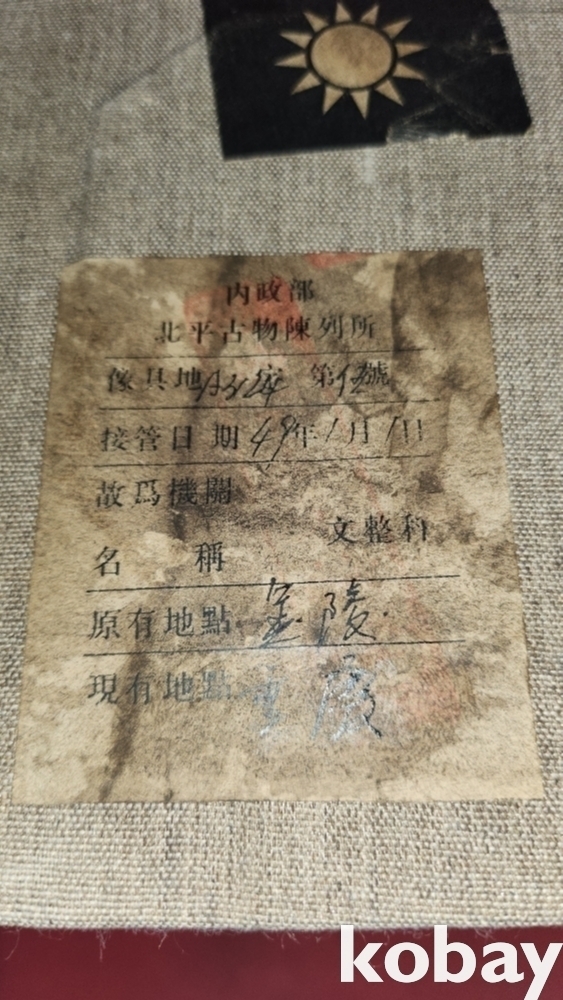 內政部
北平古物陳列所
傢具地 第 號
接管日期 49年1月1日
故爲機關
文整科
名稱
原有地點 金陵
現有地點
kobay